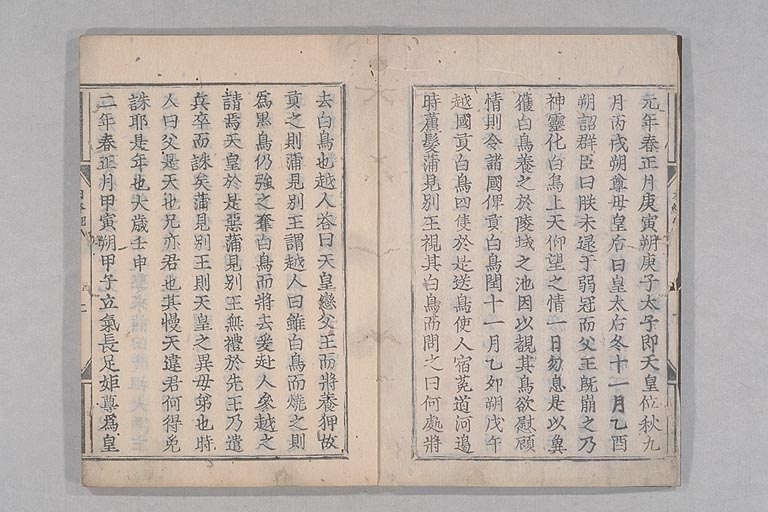 元年春正月庚寅朔庚子太子即天皇位秋九
月丙戌朔尊母皇后曰皇太后冬十一月乙酉
朔詔群臣曰朕未逮于弱冠而父王既崩之乃
神靈化白鳥上天仰望之情一日勿息是以冀
獲白鳥養之於陵域之池因以覩其鳥欲慰顧
情則令諸國俾貢白鳥閏十一月乙卯朔戊午
越國貢白鳥四隻於是送鳥使人宿菟道河邊
時蘆髮蒲見別王視其白鳥而問之曰何處將
去白鳥也越人荅曰天皇戀父王而將養狎故
貢之則蒲見別王謂越人曰雖白鳥而燒之則
為黒鳥仍強之奪白鳥而將去爰赴人參越之
請焉天皇於是惡蒲見別王無禮於先王乃遣
兵卒而誅矣蒲見別王則天皇之異母弟也時
人曰父是天也兄亦君也其慢天違君何得免
誅耶是年也大歳壬申
二年春正月甲寅朔甲子立氣長足姫尊爲皇